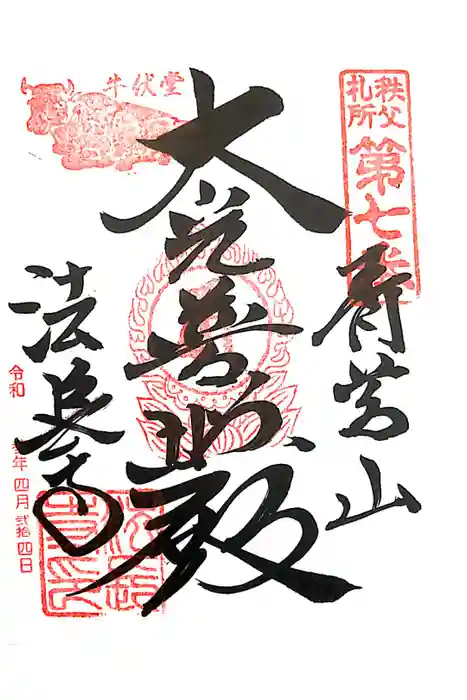 秩父
札所
第七番
青苔山
大光普照殿
牛伏堂
法長寺
令和 年四月弐拾四日